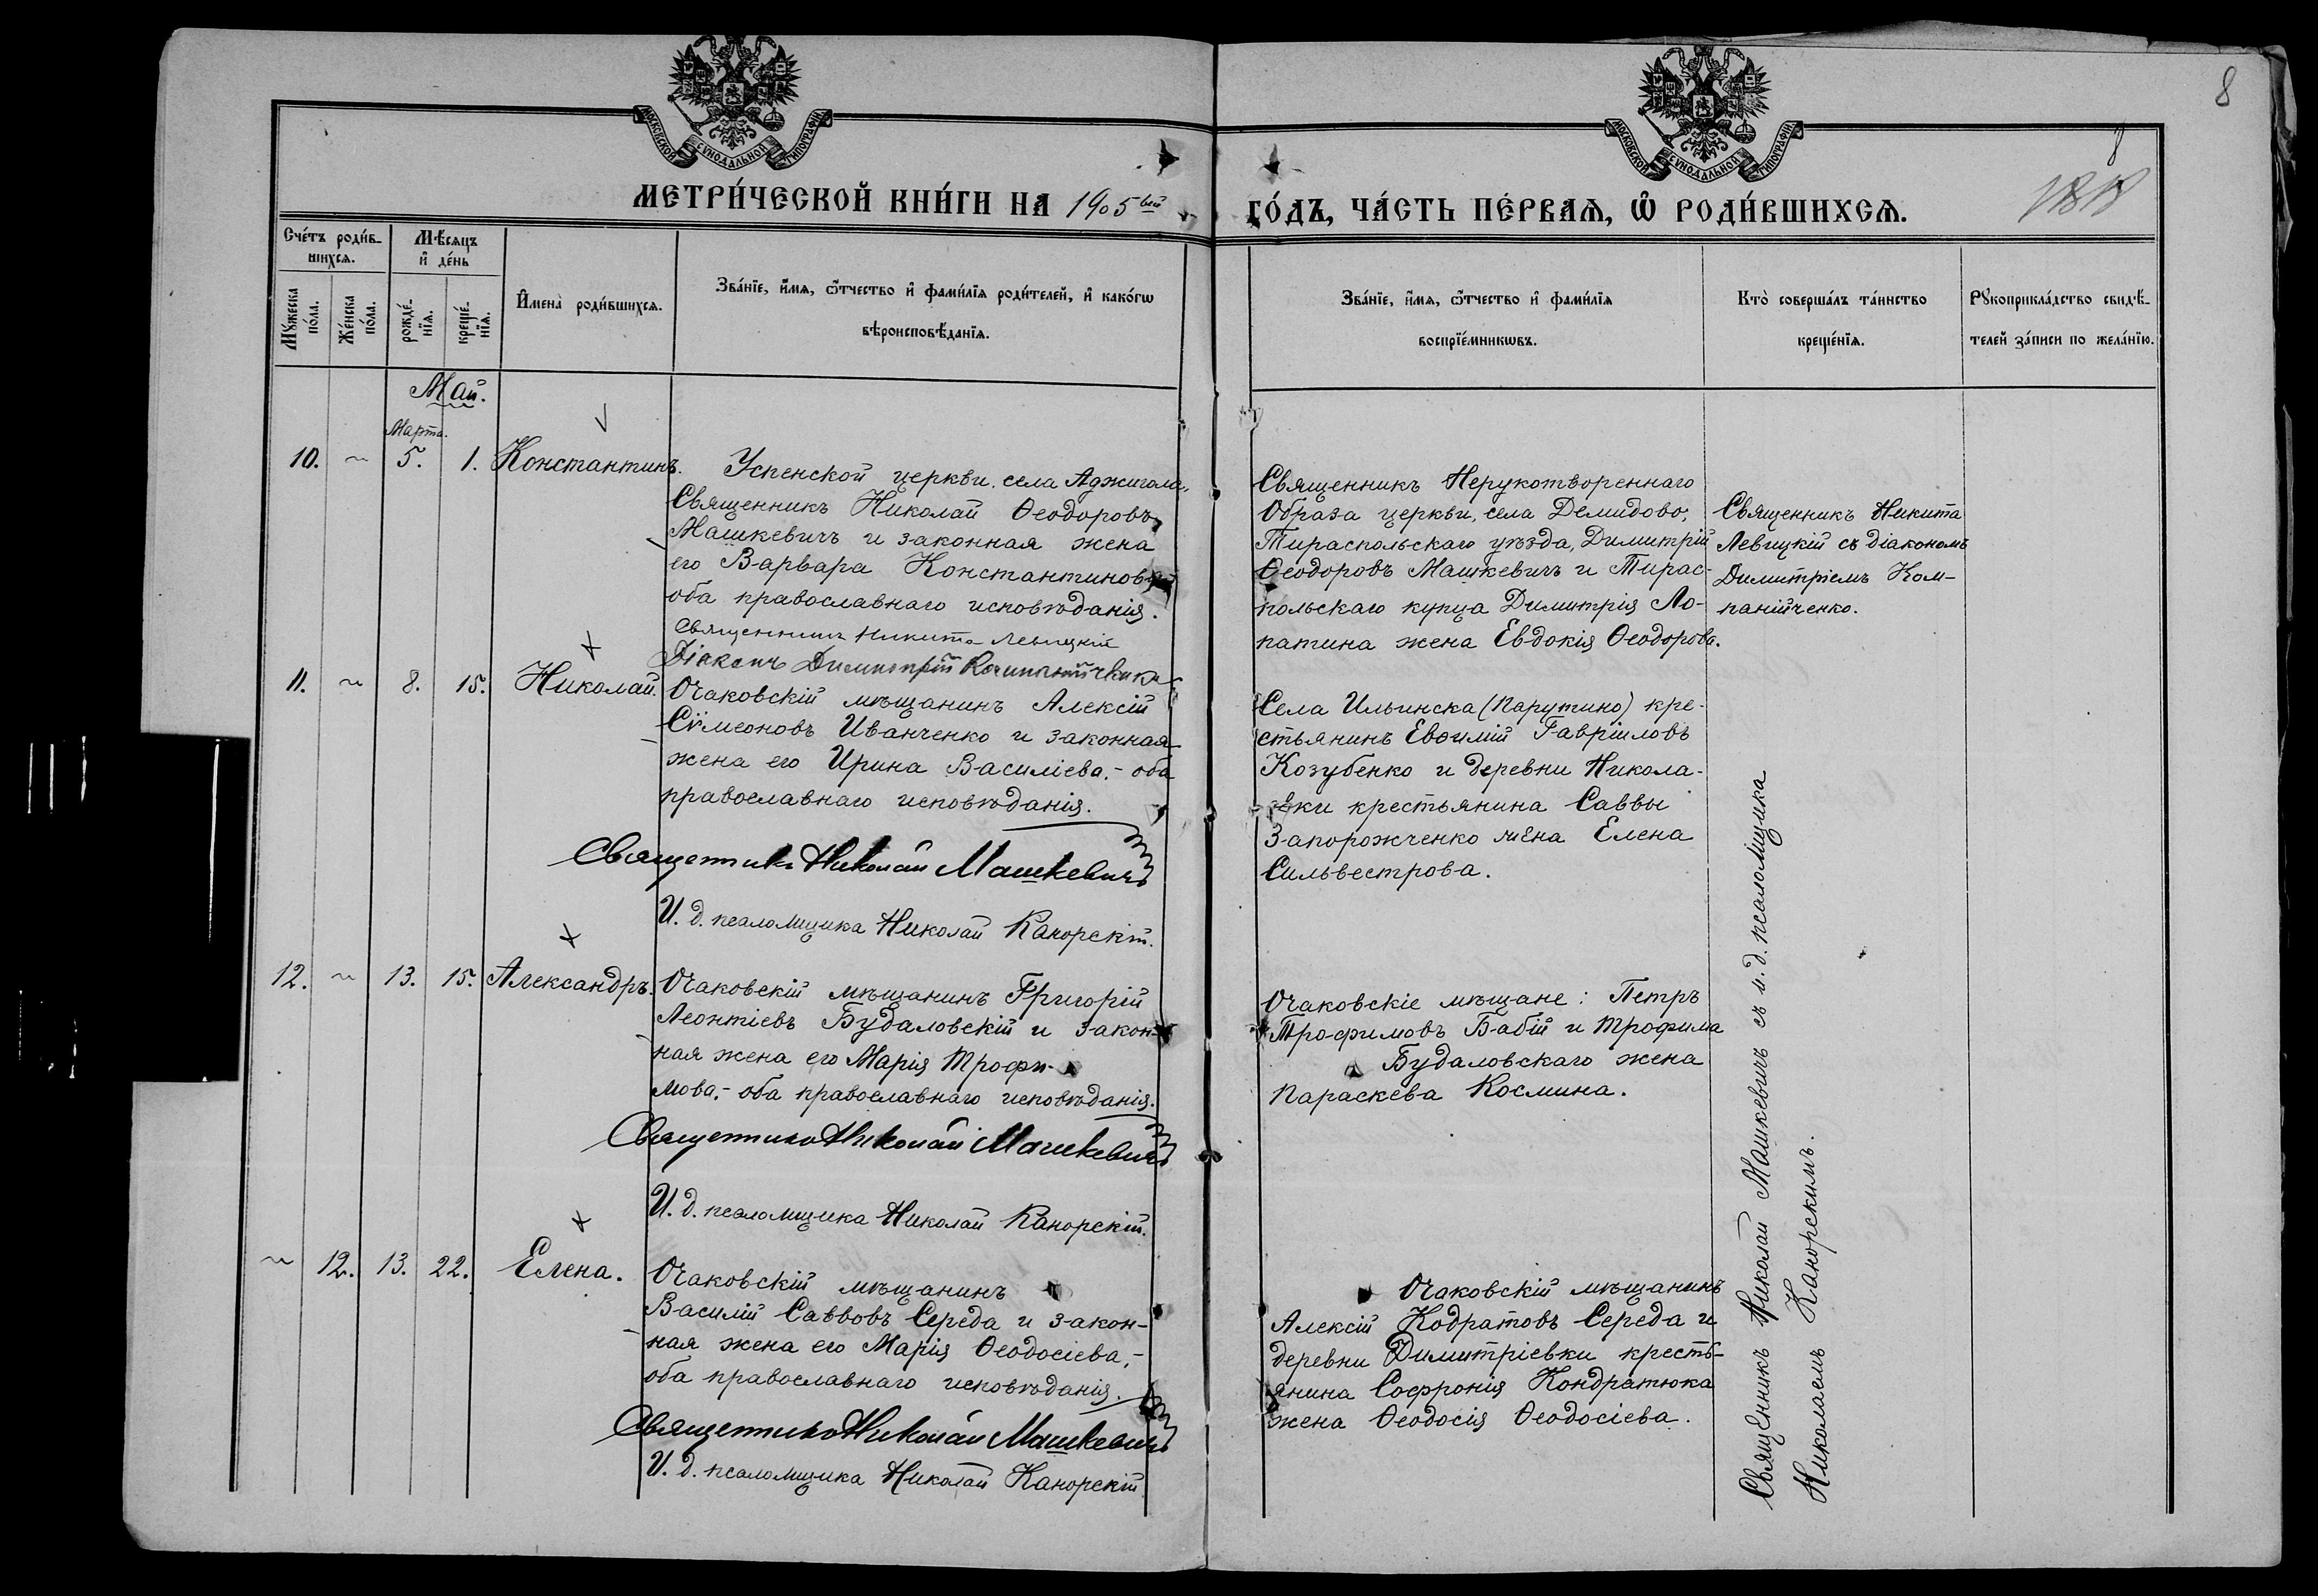 8
МОСКОВСКОЙ СѴНОДАЛЬНОЙ ТИПОГРАФІИ
МОСКОВСКОЙ СѴНОДАЛЬНОЙ ТИПОГРАФІИ
8
МЕТРИ́ЧЕСКОЙ КНИ́ГИ НА 1905ый
ГО́ДЪ, ЧА́СТЬ ПЕ́РВАѦ, Ѽ РОДИ́ВШИХСѦ.
Сче́тъ роди́в-
шихсѧ.
Мѣ́сѧцъ
и҆ де́нь
Мꙋ́жеска
по́ла.
Же́нска
по́ла.
рожде́-
нїѧ.
креще́-
нїѧ.
И҆мена̀ роди́вшихсѧ.
Зва́нїе, и҆́мѧ, ѻ҆́тчество и҆ фами́лїѧ роди́телей, и҆ како́гѡ
вѣроисповѣ́данїѧ.
Зва́нїе, и҆́мѧ, ѻ҆́тчество и҆ фами́лїѧ
воспрїе́мникѡвъ.
Кто̀ соверша́лъ та́инство
креще́нїѧ.
Рꙋкоприкла́дство свидѣ́-
телей за́писи по жела́нїю.
Май.
Марта.
10. ~ 5. 1. Константинъ.
Успенской церкви села Аджигола,
Священникъ Николай Ѳеодоровъ
Машкевичъ и законная жена
его Варвара Константинова
оба православнаго исповѣданія.
Священникъ Никита Левицкій
Діаконъ Димитрій Компанійченко
Священникъ Нерукотвореннаго
Образа церкви, села Демидово,
Тираспольскаго уѣзда, Димитрій
Ѳеодоровъ Машкевичъ и Тирас-
польскаго купца Димитрія Ло-
патина жена Евдокія Ѳеодорова.
Священникъ Никита
Левицкій съ діакономъ
Димитріемъ Ком-
панійченко.
11. ~ 8. 15. Николай.
Очаковскій мѣщанинъ Алексій
Сѵмеоновъ Иванченко и законная
жена его Ирина Василіева,- оба
православнаго исповѣданія.
Священникъ Николай Машкевичъ
И. д. псаломщика Николай Канорскій.
Села Ильинска (Парутино) кре-
стьянинъ Евѳимій Гавріиловъ
Козубенко и деревни Никола-
евки крестьянина Саввы
Запорожченко жена Елена
Сильвестрова.
12. ~ 13. 15. Александръ.
Очаковскій мѣщанинъ Григорій
Леонтіевъ Будаловскій и закон-
ная жена его Марія Трофи-
мова,- оба православнаго исповѣданія.
Священникъ Николай Машкевичъ
И. д. псаломщика Николай Канорскій.
Очаковскіе мѣщане: Петръ
Трофимовъ Бабій и Трофима
Будаловскаго жена
Параскева Космина.
~ 12. 13. 22. Елена.
Очаковскій мѣщанинъ
Василій Саввовъ Середа и закон-
ная жена его Марія Ѳеодосіева,-
оба православнаго исповѣданія.
Священникъ Николай Машкевичъ
И. д. псаломщика Николай Канорскій
Очаковскій мѣщанинъ
Алексій Кодратовъ Середа и
деревни Димитріевки кресть-
янина Софронія Кондратюка
жена Ѳеодосія Ѳеодосіева.
Священникъ Николай Машкевичъ съ и. д. псаломщика
Николаемъ Канорскимъ.